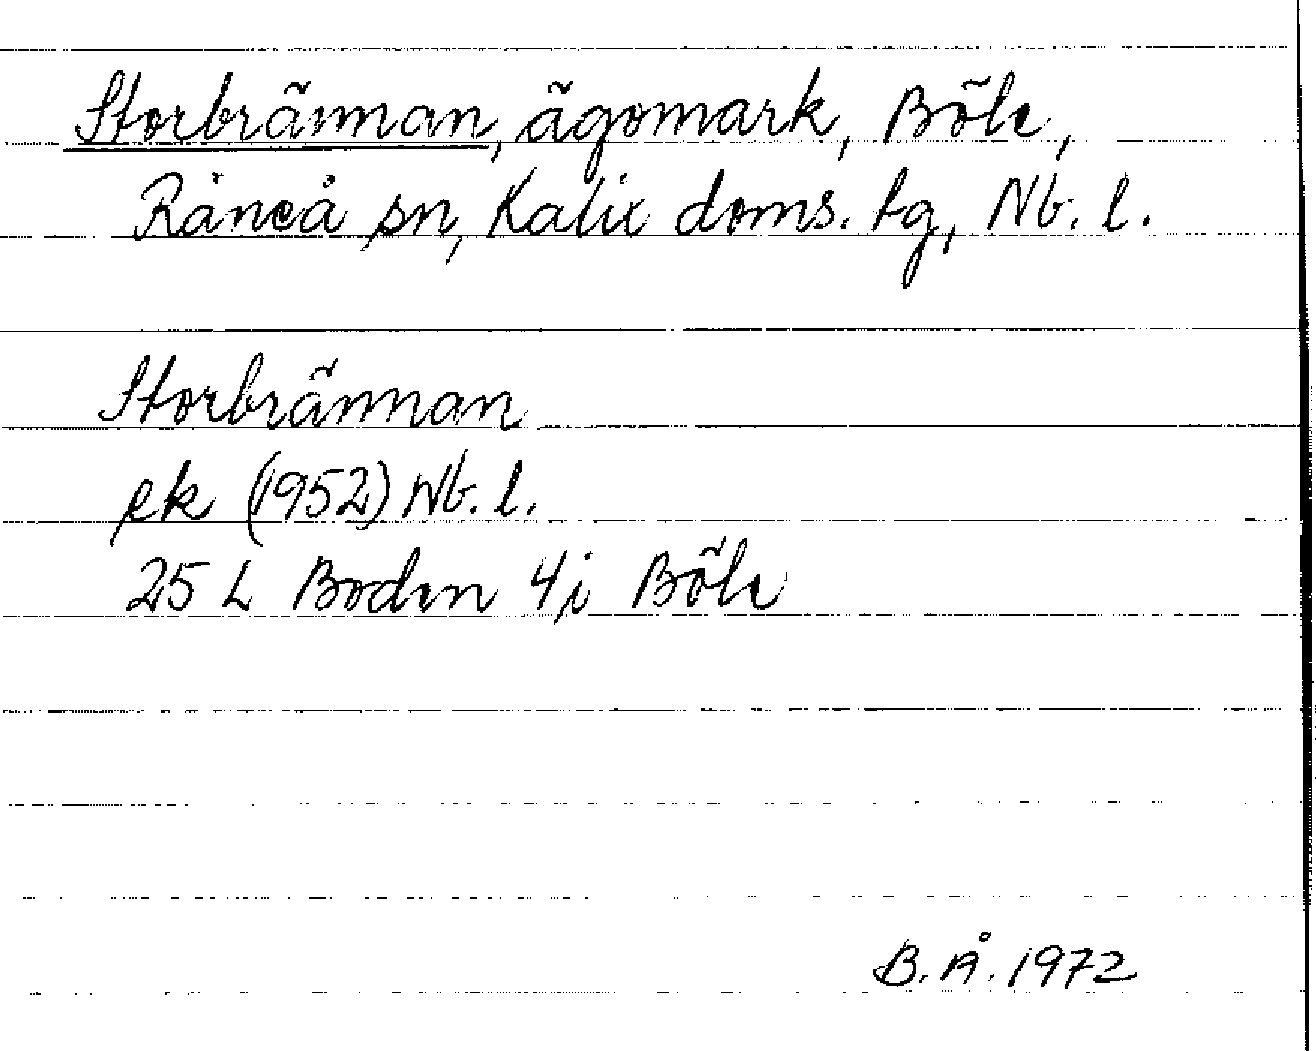 Storbrännan, ägomark, Böle,
Råneå sn, Kalix doms. tg, Nb. l.
Storbrännan
ek (1952) Nb. l.
25 L Boden 4j Böle
B. Å. 1972